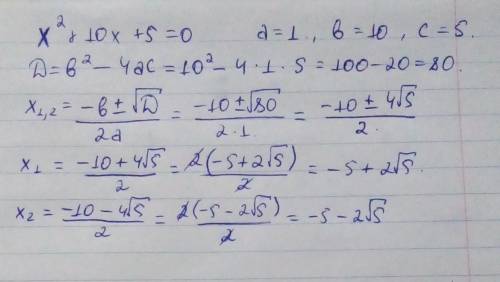 x² + 10x + 5 = 0   a = 1 , b = 10 , c = 5.
D = b² — 4ac = 10² — 4 · 1 · 5 = 100 - 20 = 80.
x₁,₂ = (-b ± √D)/2a = (-10 ± √80)/(2 · 1) = (-10 ± 4√5)/2.
x₁ = (-10 + 4√5)/2 = 2(-5 + 2√5)/2 = -5 + 2√5.
x₂ = (-10 - 4√5)/2 = 2(-5 - 2√5)/2 = -5 - 2√5